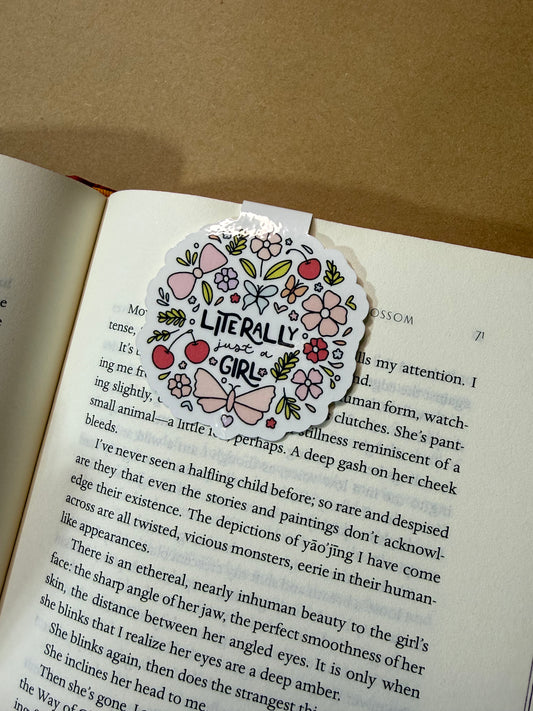 LITERALLY
just a
GIRL
OSSOM 71
Mo lls my attention. I
tense, nd.
It's human form, watch-
ing me fr clutches. She's pant-
ing slightly, stillness reminiscent of a
small animal—a little perhaps. A deep gash on her cheek
bleeds.
I've never seen a halfling child before; so rare and despised
are they that even the stories and paintings don't acknowl-
edge their existence. The depictions of yāo'jīng I have come
across are all twisted, vicious monsters, eerie in their human-
like appearances.
There is an ethereal, nearly inhuman beauty to the girl's
face: the sharp angle of her jaw, the perfect smoothness of her
skin, the distance between her angled eyes. It is only when
she blinks that I realize her eyes are a deep amber.
She blinks again, then does the strangest thin
She inclines her head to me
Then she's gone. I
the Way of
ing